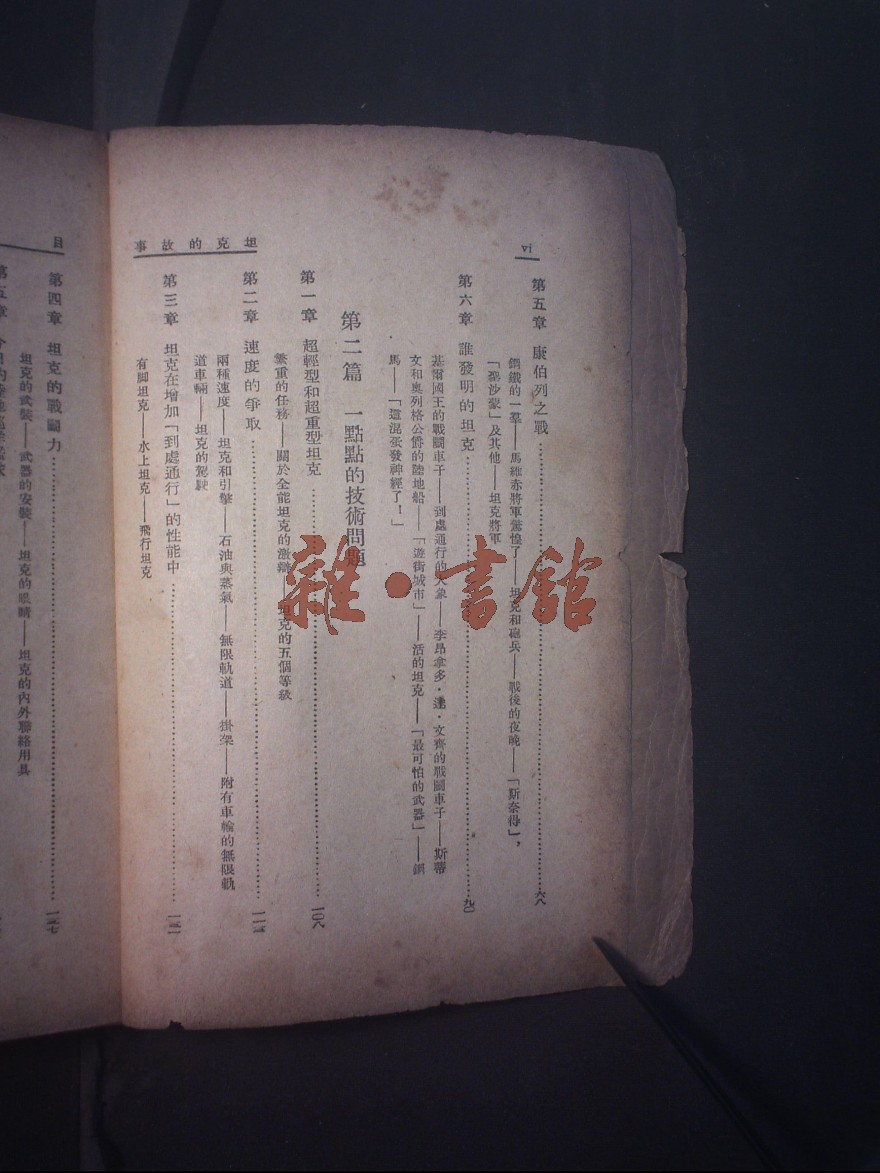 坦克的故事
vi
第五章 康伯列之戰⋯⋯六八
鋼鐵的一羣——馬維赤將軍驚惶了——坦克和砲兵——戰後的夜晚——「斯奈得」,
「聖沙蒙」及其他——坦克將軍
第六章 誰發明的坦克⋯⋯九〇
基爾國王的戰鬭車子——到處通行的大象——李昂拿多·達·文齊的戰鬭車子——斯蒂
文和奧列格公爵的陸地船——「遊街城市」——活的坦克——「最可怕的武器」——鋼
馬——「這混蛋發神經了!」
第二篇 一點點的技術問題
第一章 超輕型和超重型坦克⋯⋯一〇八
繁重的任務——關於全能坦克的激辯——坦克的五個等級
第二章 速度的爭取⋯⋯一一三
兩種速度——坦克和引擎——石油與蒸氣——無限軌道——掛架——附有車輪的無限軌
道車輛——坦克的駕駛
第三章 坦克在增加「到處通行」的性能中⋯⋯一二一
有脚坦克——水上坦克——飛行坦克
目
第四章 坦克的戰鬭力⋯⋯一二七
坦克的武裝——武器的安裝——坦克的眼睛——坦克的內外聯絡用具
第五章
雜·書館